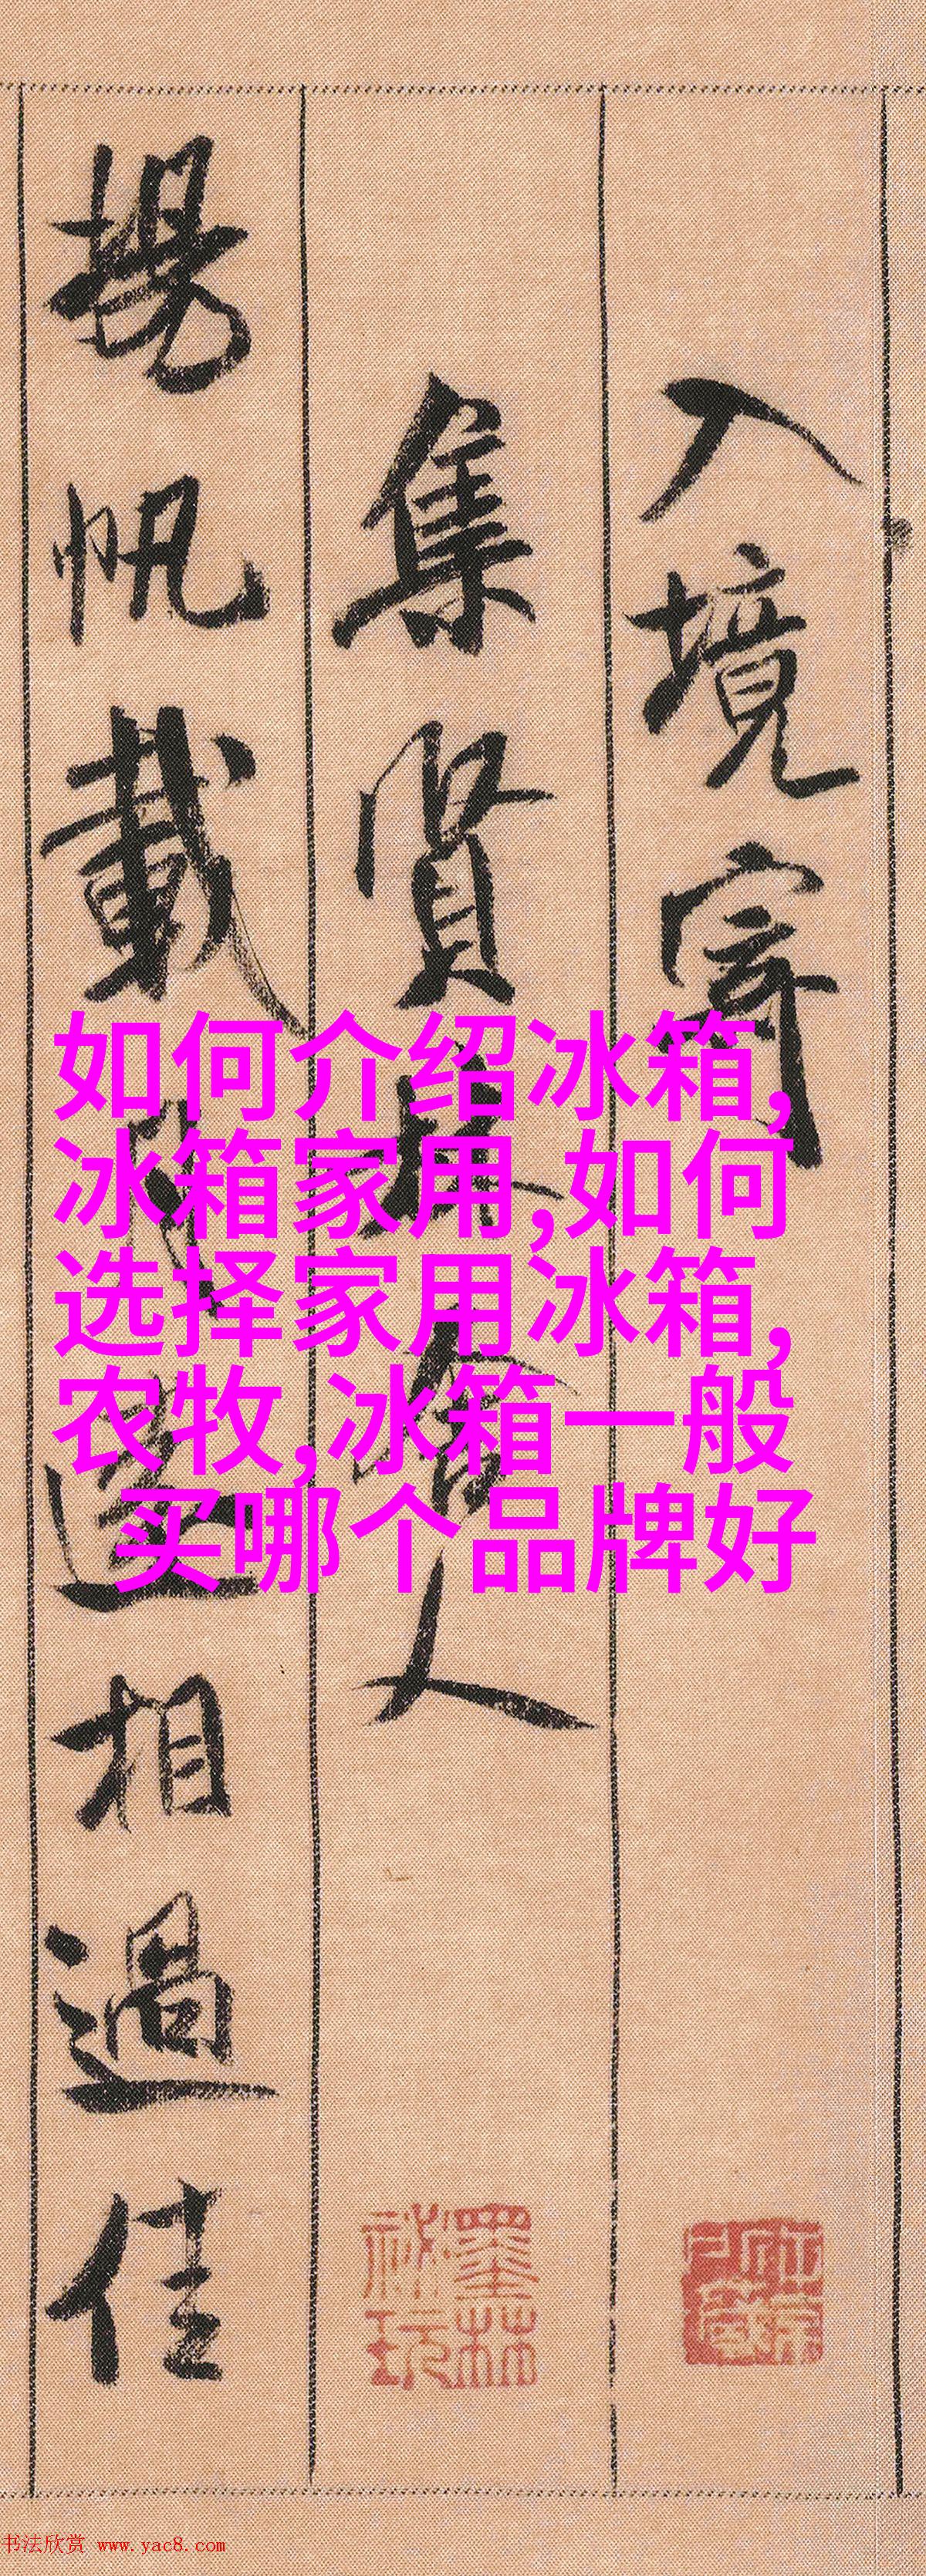 入境寄
集賢林舍人
揚帆載月遠相過佳
如何介绍冰箱,
冰箱家用,如何
选择家用冰箱,
农牧,冰箱一般
买哪个品牌好
墨林
祕玩
书法欣赏 www.yac8.com